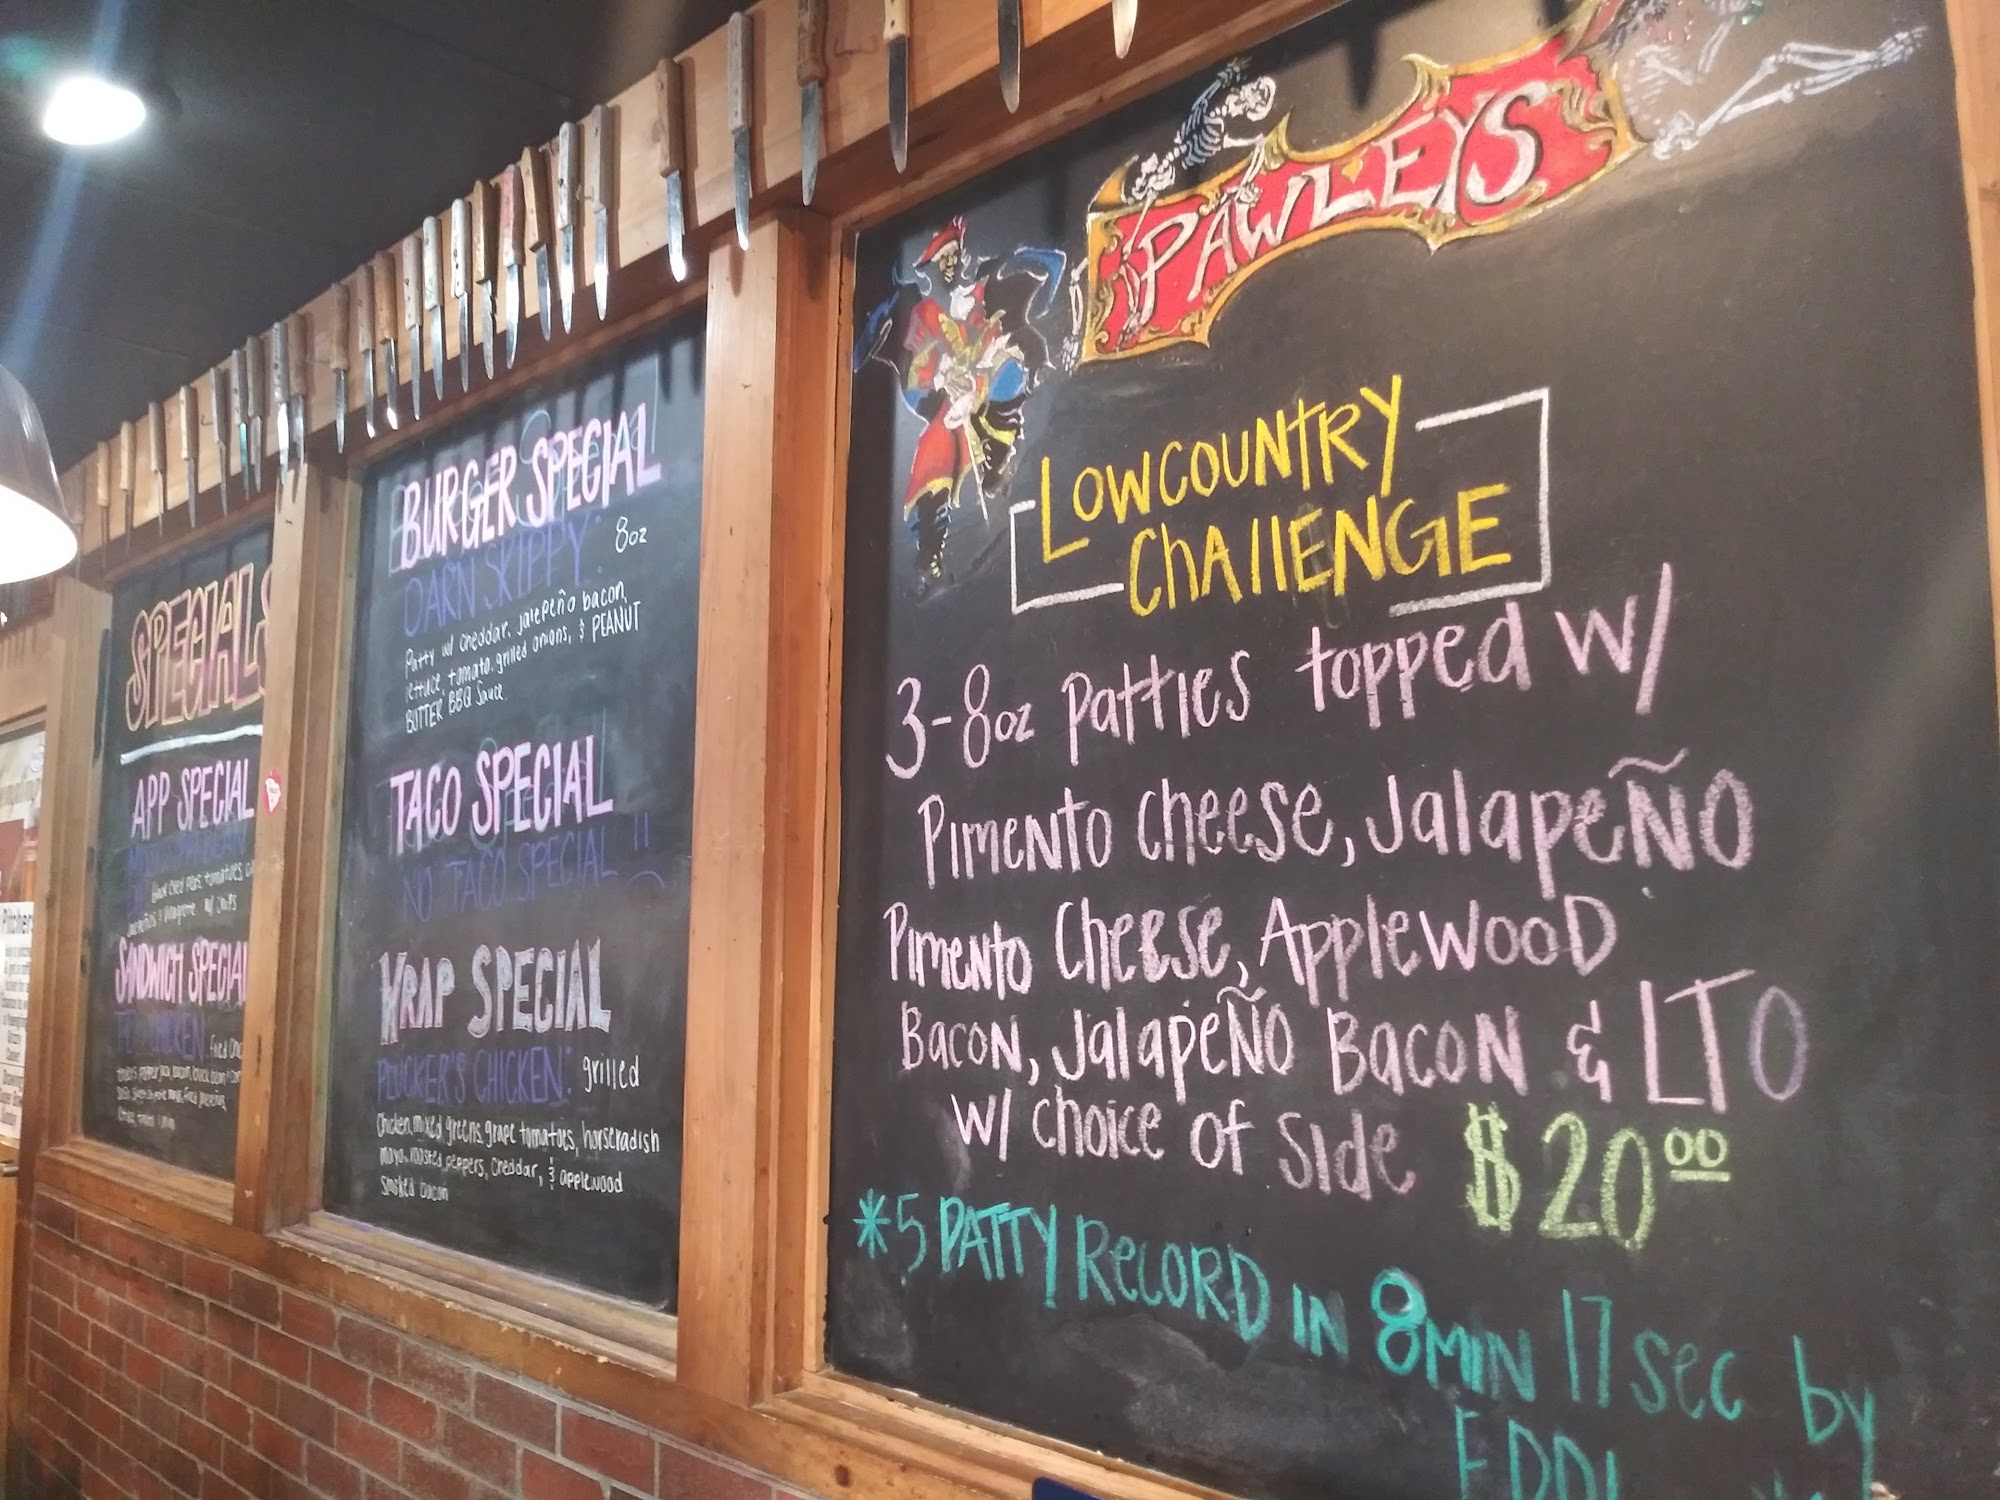 SPECIALS
APP SPECIAL
black eyed peas, tomatoes,
vinagrette w/ chips
SANDWICH SPECIAL
CHICKEN: Fried
pepper jack, bacon,
BURGER SPECIAL
DARN SKIPPY: 8oz
Patty w/ cheddar, jalepeño bacon,
lettuce, tomato, grilled onions, & PEANUT
BUTTER BBQ Sauce
TACO SPECIAL
NO TACO SPECIAL
WRAP SPECIAL
PLUCKER'S CHICKEN: grilled
Chicken, mixed greens, grape tomatoes, horseradish
mayo, roasted peppers, cheddar, & applewood
smoked bacon
PAWLEYS
LOWCOUNTRY
CHALLENGE
3-8oz Patties topped w/
Pimento Cheese, Jalapeño
Pimento Cheese, Applewood
Bacon, Jalapeño Bacon & LTO
w/ choice of side $20.00
*5 PATTY RECORD IN 8 MIN 17 sec by
EDDI
Pitcher